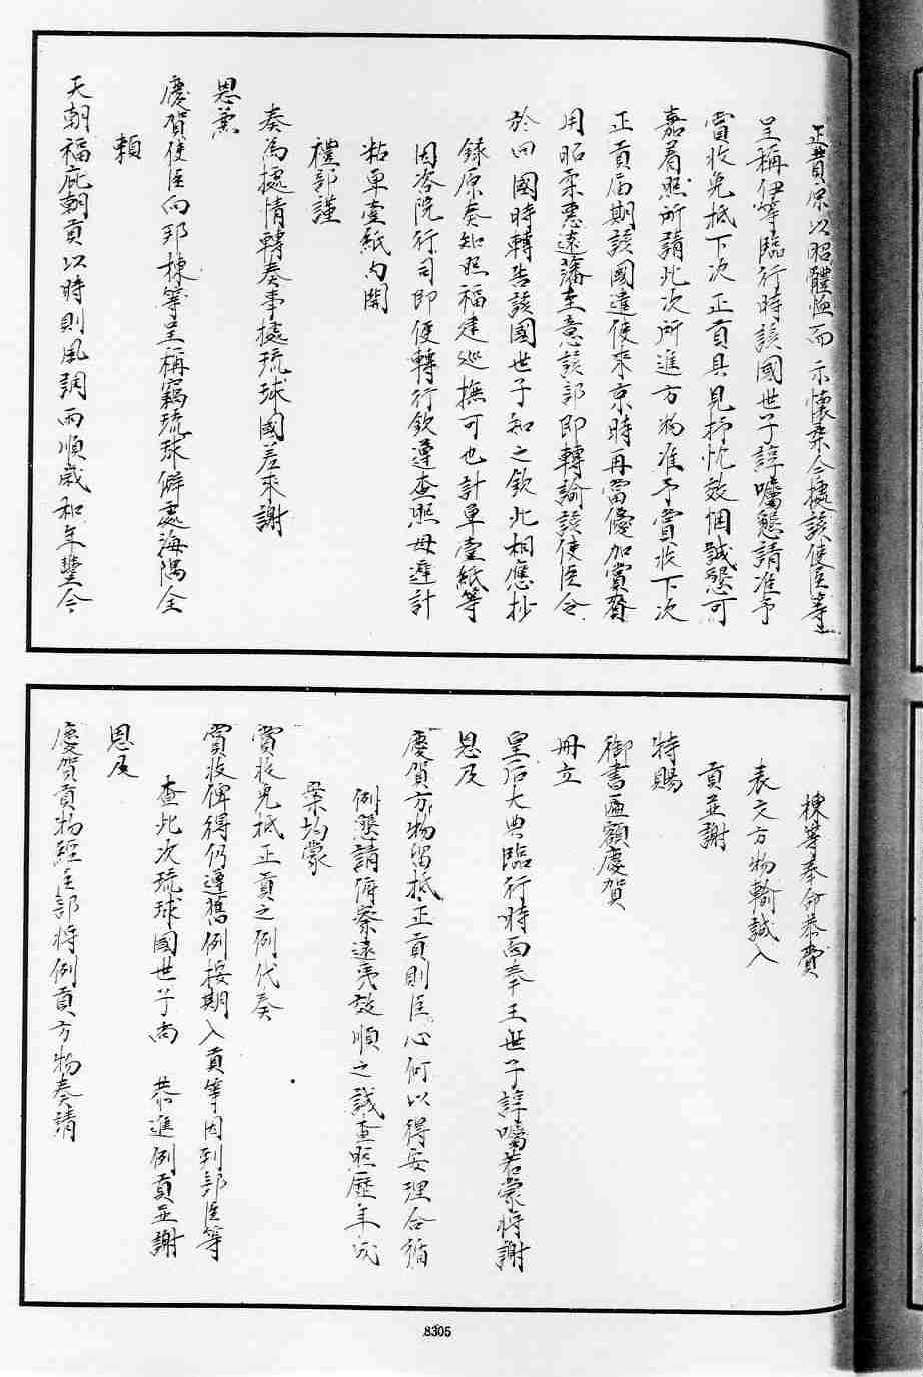 正貢原以昭體恤而示懷柔今據該使臣等
呈稱伊等臨行時該國世子諄囑懇請准予
賞收免抵下次正貢具見抒忱效悃誠懇可
嘉着照所請此次所進方物准予賞收下次
正貢届期該國遣使來京時再當優加賞賚
用昭柔惠遠藩至意該部即轉諭該使臣令
於回國時轉告該國世子知之欽此相應抄
錄原奏知照福建巡撫可也計單壹紙等
因咨院行司即便轉行欽遵查照毋遲計
粘單壹紙內開
禮部謹
奏為據情轉奏事據琉球國差來謝
恩兼
慶賀使臣向邦棟等呈稱竊琉球僻處海隅全
賴
天朝福庇朝貢以時則風調雨順歲和年豐今
棟等奉命恭賫
表文方物輸誠入
貢並謝
特賜
御書匾額慶賀
冊立
皇后大典臨行時面奉王世子諄囑若蒙將謝
恩及
慶賀方物留抵正貢則臣心何以得安理合循
例懇請俯察遠夷效順之誠查照歷年成
案均蒙
賞收免抵正貢之例代奏
賞收俾得仍遵舊例按期入貢等因到部臣等
查此次琉球國世子尚 恭進例貢並謝
恩及
慶賀貢物經臣部將例貢方物奏請
8305